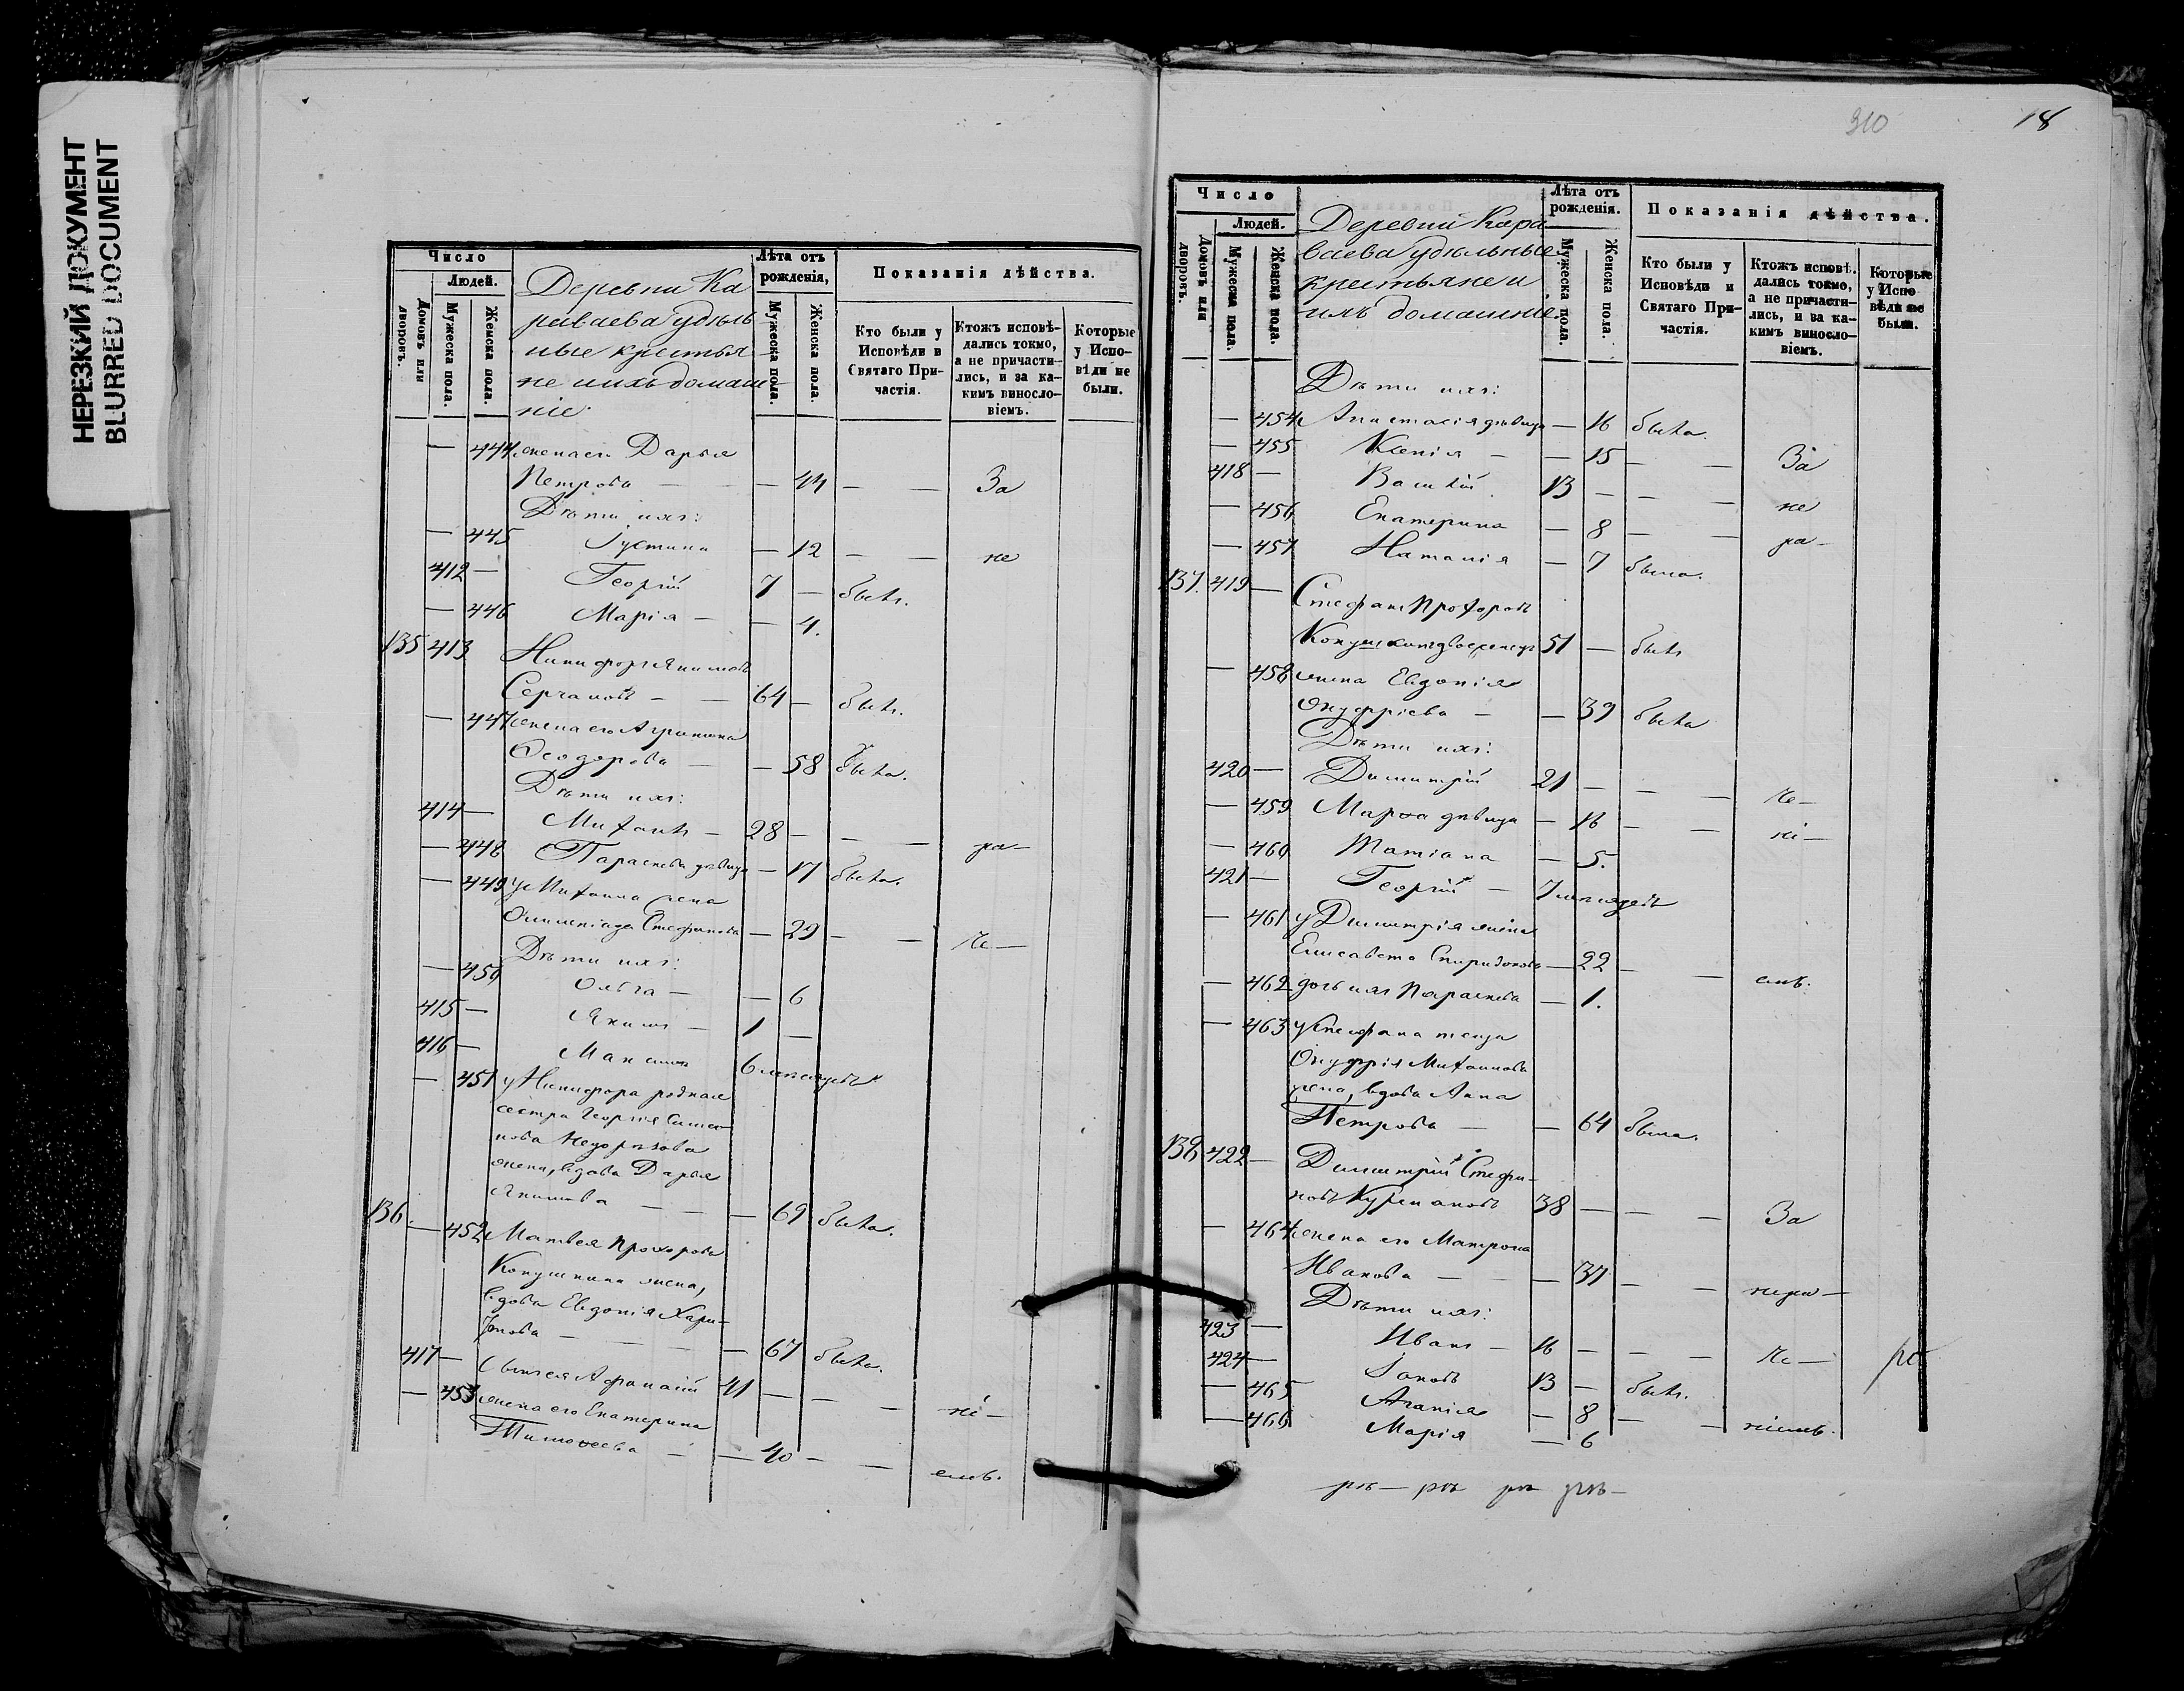 НЕРЕЗКИЙ ДОКУМЕНТ
BLURRED DOCUMENT
Число
Людей.
Домовъ или дворовъ.
Мужеска пола.
Женска пола.
Деревни Ка
раваева удѣль
ные крестья
не и ихъ домаш
ніе.
Лѣта отъ рожденія,
Мужеска пола.
Женска пола.
Показанія дѣйства.
Кто были у Исповѣди и Святаго При-частія.
Ктожъ исповѣ-дались токмо, а не причасти-лись, и за ка-кимъ винослo-віемъ.
Которые у Испо-вѣди не были.
— 444 жена его Дарья
Петрова — — 44 — — За
Дѣти ихъ:
— 445 Іустина — 12 — — не
412 — Георгій 7 — былъ.
— 446 Марія — — 4.
135 413 Никифоръ Якимовъ
— 64 — былъ.
— 447 жена его Агрипина
Ѳеодорова — — 58 была.
Дѣти ихъ:
414 — Михаилъ — 28 — — — ра—
— 448 Параскева дѣвица — 17 была.
— 449 у Михаила жена
Олимпіада Стефанова — 29 — — че—
Дѣти ихъ:
— 450 Ольга — — 6
415 — Якимъ — 1 —
416 — Максимъ 6 мѣсяцевъ
— 451 у Никифора родная
сестра Георгія Симо-
нова
жена, вдова Дарья
Якимова — — — 69 была.
136. — 452 Матвея Прохорова
Копушкина жена,
вдова Евдокія Хари-
тонова — — — 67 была.
417 — Сынъ ея Афанасій 41 — — — ні—
— 453 жена его Екатерина
Тимоѳеева — — 40 — — емъ.
310
18
Число
Людей.
Домовъ или дворовъ.
Мужеска пола.
Женска пола.
Деревни Кара
ваева удѣльные
крестьяне и
ихъ домашніе.
Лѣта отъ рожденія.
Мужеска пола.
Женска пола.
Показанія дѣйства.
Кто были у Исповѣди и Святаго При-частія.
Ктожъ исповѣ-дались токмо, а не причасти-лись, и за ка-кимъ винослo-віемъ.
Которые у Испо-вѣди не были.
Дѣти ихъ:
— 454 Анастасія дѣвица — 16 была.
— 455 Ксенія — — 15 — — За
418 — Василій 13 — — — не
— 456 Екатерина — 8 — — ра—
— 457 Наталія — 7 была.
137. 419 — Стефанъ Прохоровъ
Копушкинъ двоеженецъ 51 — былъ
— 458 жена Евдокія
Онуфріева — — 39 была
Дѣти ихъ:
420 — Димитрій 21 — — — че—
— 459 Марѳа дѣвица — 16 — — ні—
— 460 Татіана — 5.
421 — Георгій — 7 мѣсяцевъ
— 461 у Димитрія жена
Елисавета Спиридонова — 22 — — емъ.
— 462 дочь ихъ Параскева — 1.
— 463 у Стефана теща
Онуфрія Михаилова
жена, вдова Анна
Петрова — — 64 была.
138 422 — Димитрій Стефа-
новъ 38 — — — За
— 464 жена его Матрона
Иванова — — — 37 — — нера—
Дѣти ихъ:
423 — Иванъ — 16 — — — че—
424 — Іаковъ 13 — былъ.
— 465 Агапія — 8 — — ніемъ.
— 466 Марія — 6